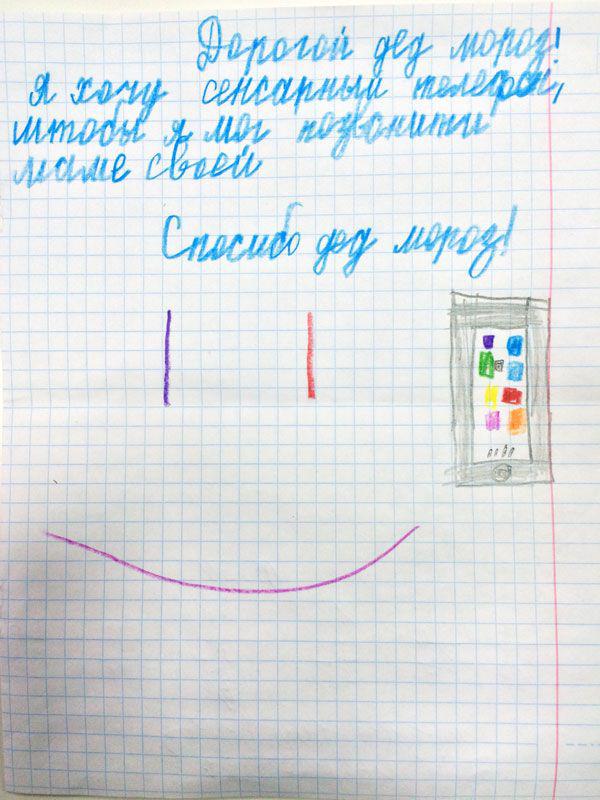 Дорогой дед мороз!
я хочу сенсарный телефон,
чтобы я мог позвонити
маме своей
Спосибо дед мороз!